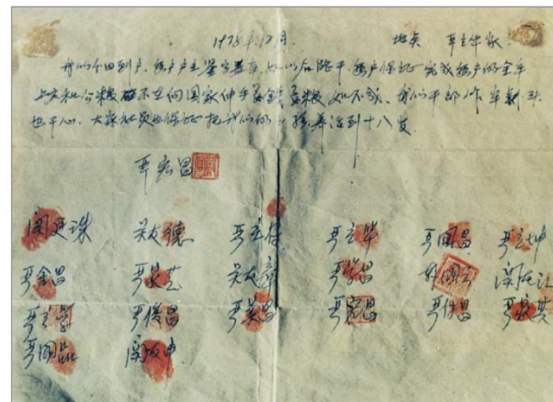 1978年12月 地点 严立华家
我们分田到户,每户户主签字盖章,如以后能干,每户保证完成每户的全年
上交和公粮 不在向国家伸手要钱要粮 如不成,我们干部作牢刹头
也干心,大家社员也保证把我们的小孩养活到十八岁.
严宏昌
关廷珠 关友德 严立符 严立华 严国昌 严立坤
严金昌 严家芝 关友章 严学昌 韩国云 关友江
严立学 严俊昌 严美昌 严宏昌 严付昌 严家其
严国品 关友申